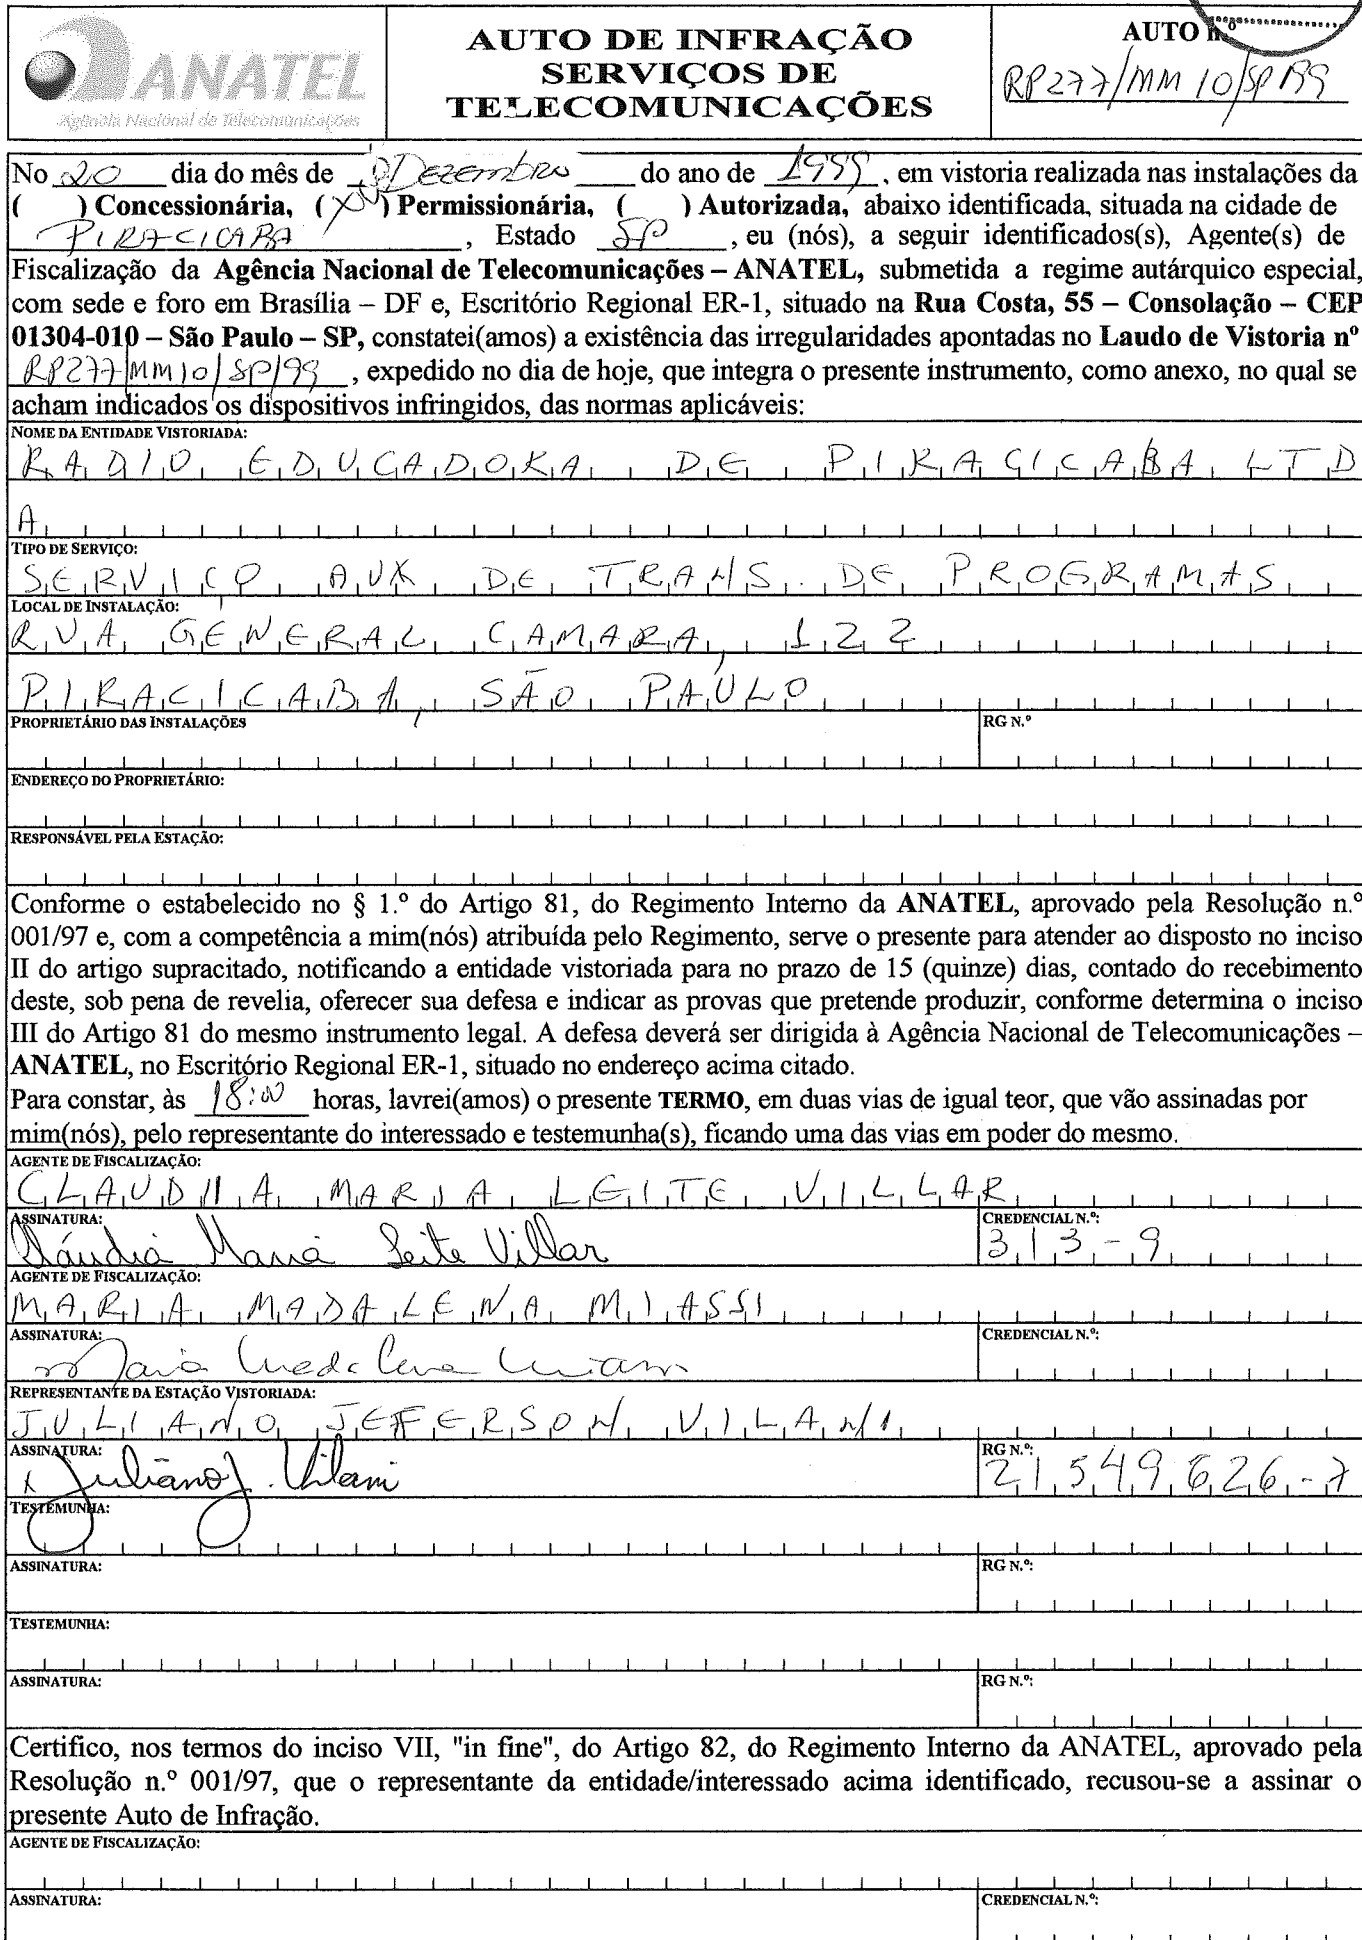 ANATEL
Agência Nacional de Telecomunicações
AUTO DE INFRAÇÃO
SERVIÇOS DE
TELECOMUNICAÇÕES
AUTO nº
RP277/MM10/SP/99
No 20 dia do mês de Dezembro do ano de 1999, em vistoria realizada nas instalações da
( ) Concessionária, (X) Permissionária, ( ) Autorizada, abaixo identificada, situada na cidade de
PIRACICABA, Estado SP, eu (nós), a seguir identificados(s), Agente(s) de
Fiscalização da Agência Nacional de Telecomunicações – ANATEL, submetida a regime autárquico especial,
com sede e foro em Brasília – DF e, Escritório Regional ER-1, situado na Rua Costa, 55 – Consolação – CEP
01304-010 – São Paulo – SP, constatei(amos) a existência das irregularidades apontadas no Laudo de Vistoria nº
RP277/MM10/SP/99, expedido no dia de hoje, que integra o presente instrumento, como anexo, no qual se
acham indicados os dispositivos infringidos, das normas aplicáveis:
NOME DA ENTIDADE VISTORIADA:
RADIO EDUCADORA DE PIRACICABA LTD
A
TIPO DE SERVIÇO:
SERVIÇO AUX DE TRANS. DE PROGRAMAS
LOCAL DE INSTALAÇÃO:
RUA GENERAL CAMARA, 122
PIRACICABA, SÃO PAULO
PROPRIETÁRIO DAS INSTALAÇÕES
RG N.º
ENDEREÇO DO PROPRIETÁRIO:
RESPONSÁVEL PELA ESTAÇÃO:
Conforme o estabelecido no § 1.º do Artigo 81, do Regimento Interno da ANATEL, aprovado pela Resolução n.º
001/97 e, com a competência a mim(nós) atribuída pelo Regimento, serve o presente para atender ao disposto no inciso
II do artigo supracitado, notificando a entidade vistoriada para no prazo de 15 (quinze) dias, contado do recebimento
deste, sob pena de revelia, oferecer sua defesa e indicar as provas que pretende produzir, conforme determina o inciso
III do Artigo 81 do mesmo instrumento legal. A defesa deverá ser dirigida à Agência Nacional de Telecomunicações –
ANATEL, no Escritório Regional ER-1, situado no endereço acima citado.
Para constar, às 18:00 horas, lavrei(amos) o presente TERMO, em duas vias de igual teor, que vão assinadas por
mim(nós), pelo representante do interessado e testemunha(s), ficando uma das vias em poder do mesmo.
AGENTE DE FISCALIZAÇÃO:
CLAUDIA MARIA LEITE VILLAR
ASSINATURA:
Cláudia Maria Leite Villar
CREDENCIAL N.º:
313-9
AGENTE DE FISCALIZAÇÃO:
MARIA MADALENA MIASSI
ASSINATURA:
Maria Madalena Miassi
CREDENCIAL N.º:
REPRESENTANTE DA ESTAÇÃO VISTORIADA:
JULIANO JEFFERSON VILANI
ASSINATURA:
x Juliano J. Vilani
RG N.º:
21549626-7
TESTEMUNHA:
ASSINATURA:
RG N.º:
TESTEMUNHA:
ASSINATURA:
RG N.º:
Certifico, nos termos do inciso VII, "in fine", do Artigo 82, do Regimento Interno da ANATEL, aprovado pela
Resolução n.º 001/97, que o representante da entidade/interessado acima identificado, recusou-se a assinar o
presente Auto de Infração.
AGENTE DE FISCALIZAÇÃO:
ASSINATURA:
CREDENCIAL N.º: